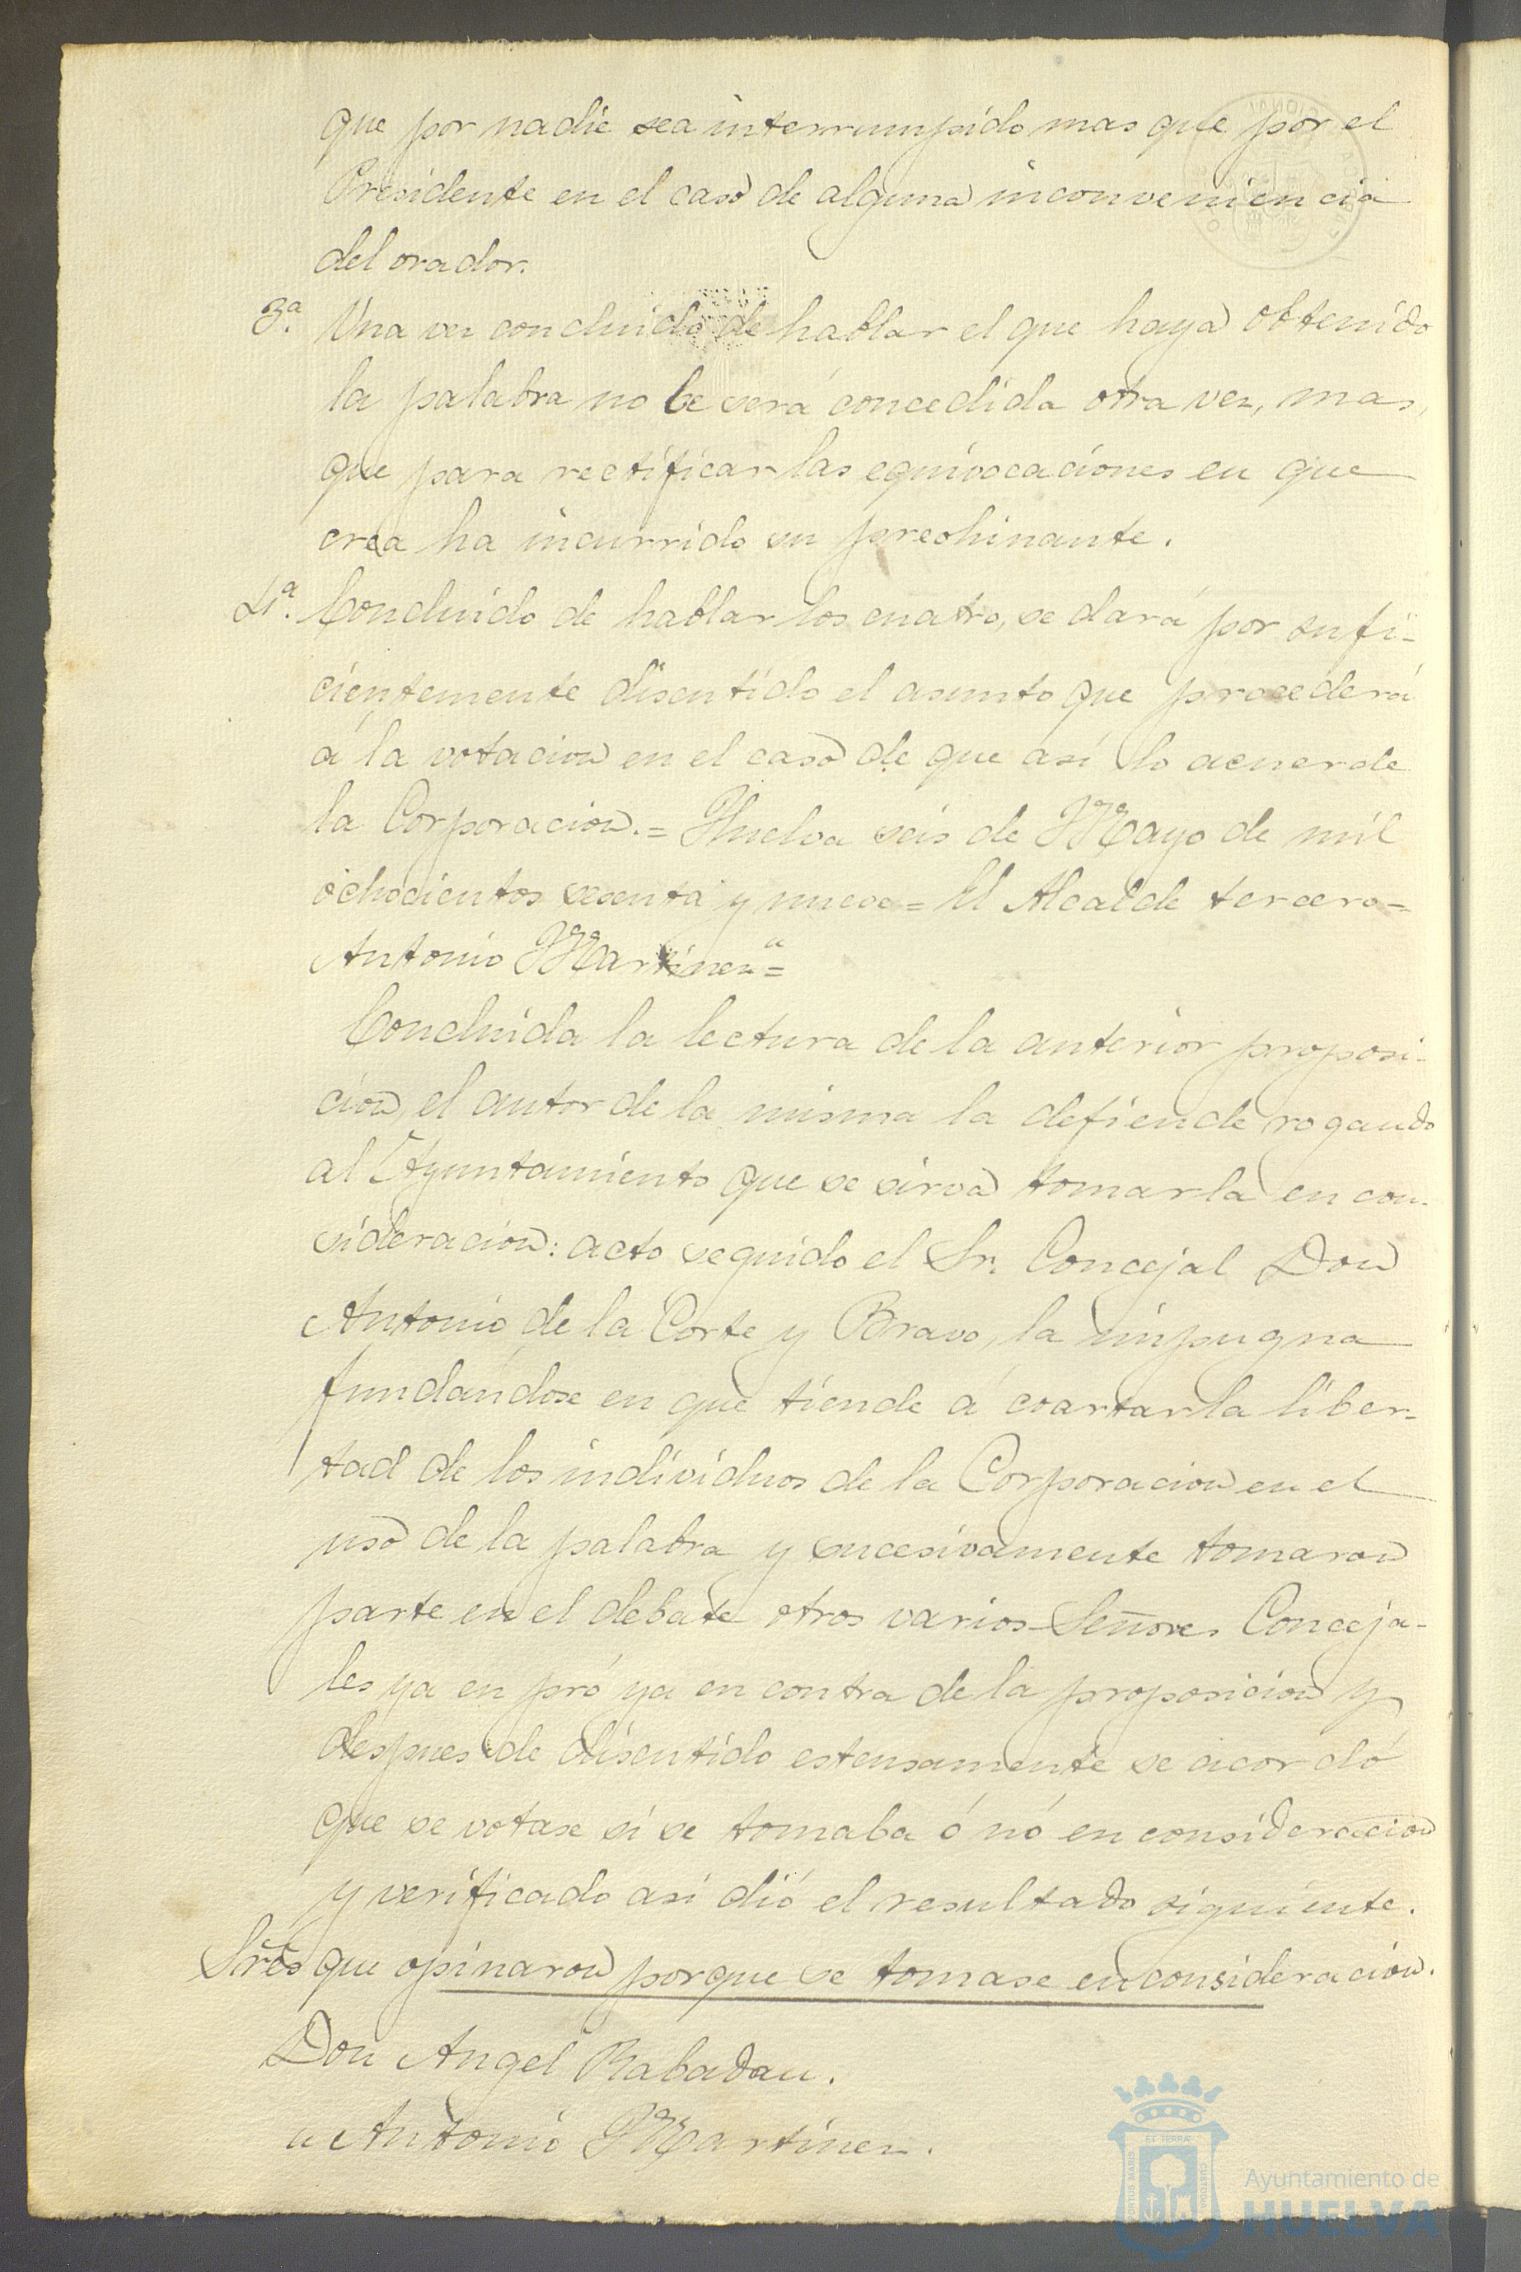 que por nadie sea interrumpido mas que por el
Presidente en el caso de alguna inconveniencia
del orador.
3ª. Una vez concluido de hablar el que haya obtenido
la palabra no le será concedida otra vez, mas,
que para rectificar las equivocaciones en que
crea ha incurrido su preohinante.
4ª. Concluido de hablar los cuatro, se dará por sufi-
cientemente discutido el asunto que procederá
á la votacion en el caso de que así lo acuerde
la Corporacion.= Huelva seis de Mayo de mil
ochocientos sesenta y nueve= El Alcalde tercero=
Antonio Martinez"=
Concluida la lectura de la anterior proposi-
cion, el autor de la misma la defiende rogando
al Ayuntamiento que se sirva tomarla en con-
sideracion: acto seguido el Sr. Concejal Don
Antonio de la Corte y Bravo, la impugna
fundándose en que tiende á coartar la liber-
tad de los individuos de la Corporacion en el
uso de la palabra y sucesivamente tomaron
parte en el debate otros varios Señores Conceja-
les ya en pró ya en contra de la proposicion y
despues de discutido estensamente se acordó
que se votase si se tomaba ó nó en consideracion
y verificado así dió el resultado siguiente.
Sres que opinaron porque se tomase en consideracion.
Don Angel Rabadan.
" Antonio Martinez.
Ayuntamiento de
HUELVA